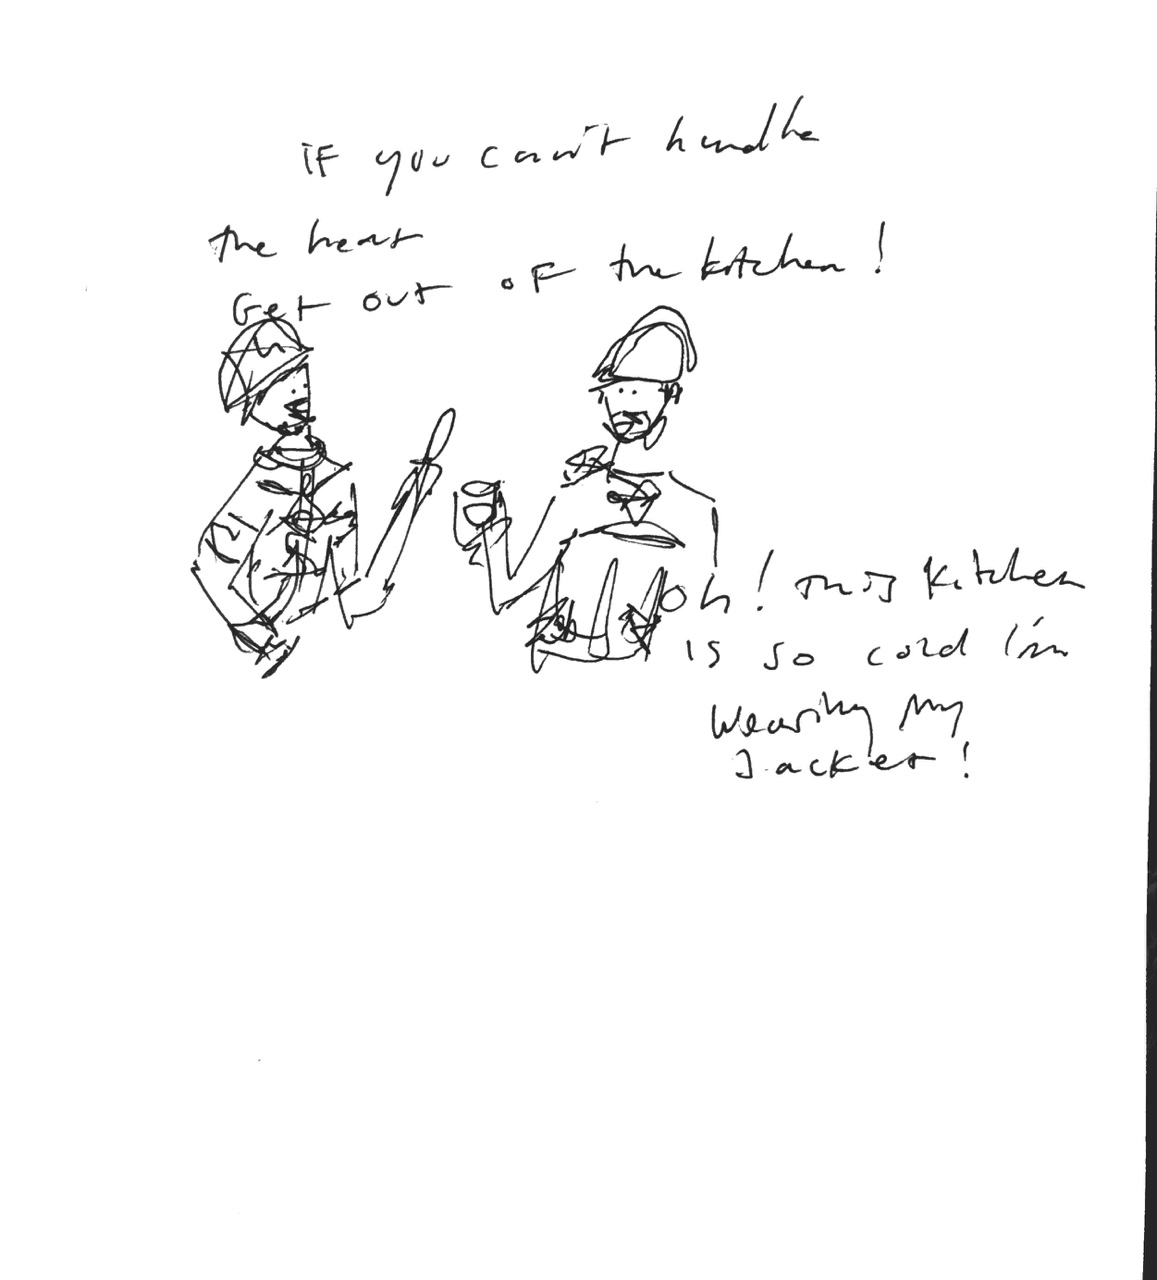 IF you can't handle
the heat
Get out of the kitchen!
Oh! This kitchen
is so cold I'm
wearing my
Jacket!